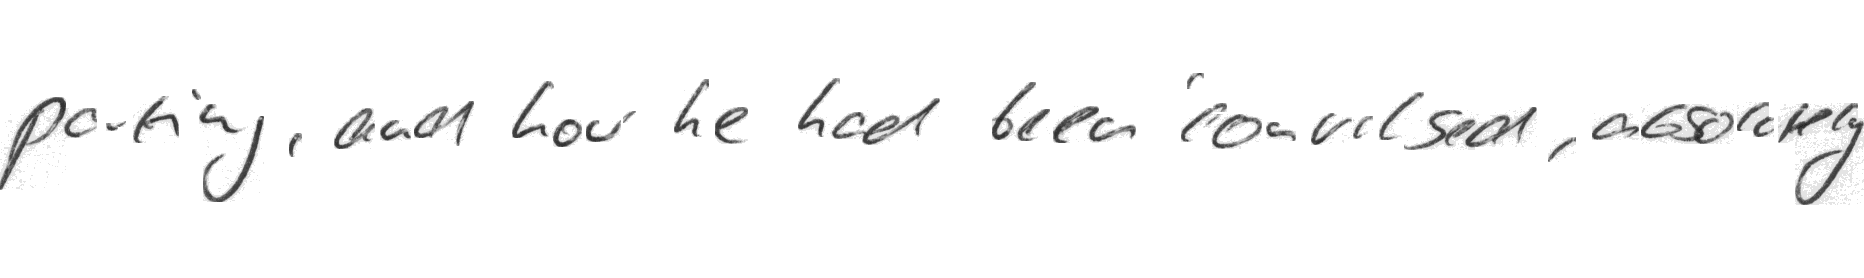 parting, and how he had been 'convulsed, absolutely